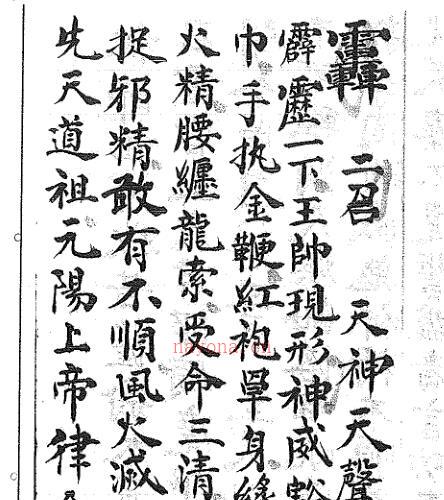 二召 天神天聲
霹靂一下王帥現形神威
巾手执金鞭紅袍罩身
火精腰纏龍索受命三清
捉邪精敢有不順風火滅
先天道祖元陽上帝律